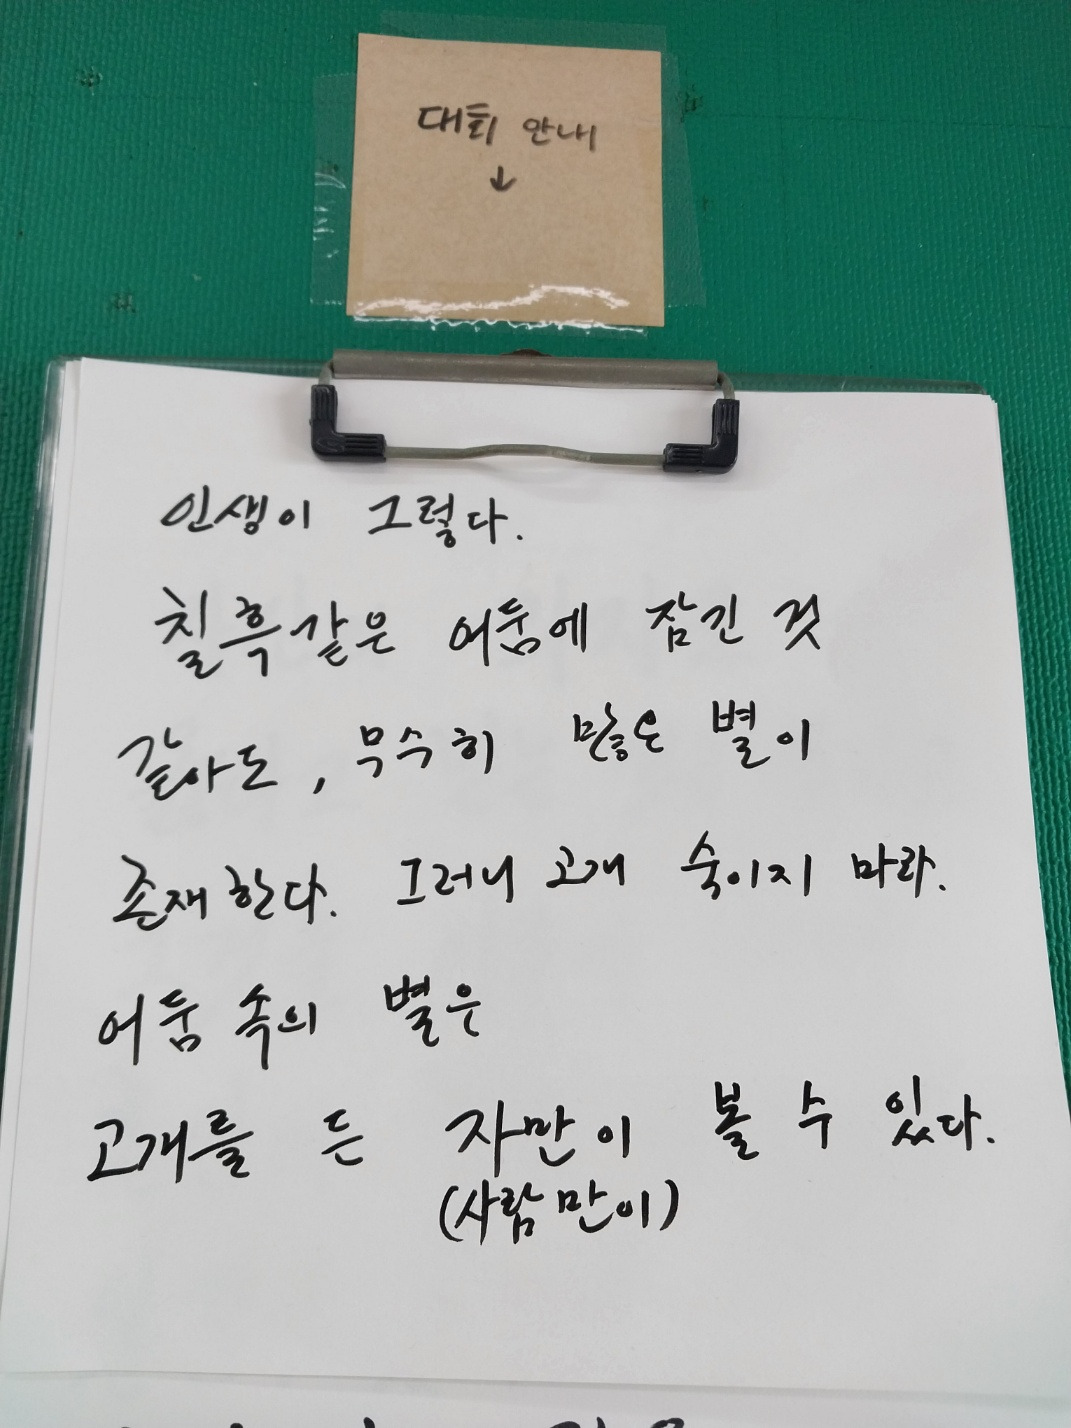 대회 안내
↓
인생이 그렇다.
칠흑같은 어둠에 잠긴 것
같아도, 무수히 많은 별이
존재한다. 그러니 고개 숙이지 마라.
어둠 속의 별은
고개를 든 자만이 볼 수 있다.
(사람만이)